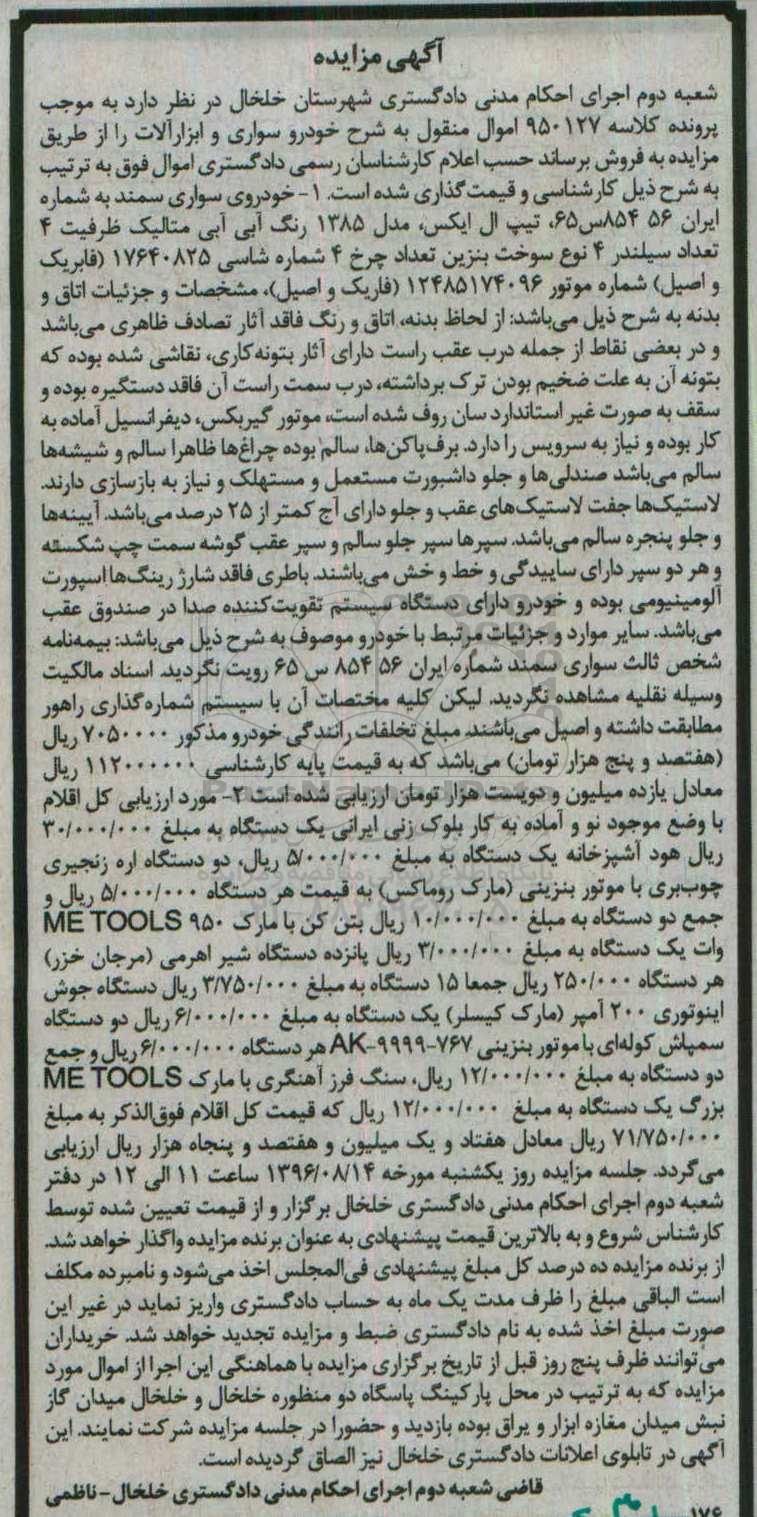 آگهی مزایده
شعبه دوم اجرای احکام مدنی دادگستری شهرستان خلخال در نظر دارد به موجب
پرونده کلاسه ۹۵۰۱۲۷ اموال منقول به شرح خودرو سواری و ابزارآلات را از طریق
مزایده به فروش برساند حسب اعلام کارشناسان رسمی دادگستری اموال فوق به ترتیب
به شرح ذیل کارشناسی و قیمت‌گذاری شده است. ۱- خودروی سواری سمند به شماره
ایران ۵۶ ۸۵۴س۶۵، تیپ ال ایکس، مدل ۱۳۸۵ رنگ آبی آبی متالیک ظرفیت ۴
تعداد سیلندر ۴ نوع سوخت بنزین تعداد چرخ ۴ شماره شاسی ۱۷۶۴۰۸۲۵ (فابریک
و اصیل) شماره موتور ۱۲۴۸۵۱۷۴۰۹۶ (فاریک و اصیل)، مشخصات و جزئیات اتاق و
بدنه به شرح ذیل می‌باشد: از لحاظ بدنه، اتاق و رنگ فاقد آثار تصادف ظاهری می‌باشد
و در بعضی نقاط از جمله درب عقب راست دارای آثار بتونه‌کاری، نقاشی شده بوده که
بتونه آن به علت ضخیم بودن ترک برداشته، درب سمت راست آن فاقد دستگیره بوده و
سقف به صورت غیر استاندارد سان روف شده است، موتور گیربکس، دیفرانسیل آماده به
کار بوده و نیاز به سرویس را دارد. برف‌پاکن‌ها، سالم بوده چراغ‌ها ظاهرا سالم و شیشه‌ها
سالم می‌باشد صندلی‌ها و جلو داشبورت مستعمل و مستهلک و نیاز به بازسازی دارند.
لاستیک‌ها جفت لاستیک‌های عقب و جلو دارای آج کمتر از ۲۵ درصد می‌باشد. آیینه‌ها
و جلو پنجره سالم می‌باشد. سپرها سپر جلو سالم و سپر عقب گوشه سمت چپ شکسته
و هر دو سپر دارای ساییدگی و خط و خش می‌باشند. باطری فاقد شارژ رینگ‌ها اسپورت
آلومینیومی بوده و خودرو دارای دستگاه سیستم تقویت‌کننده صدا در صندوق عقب
می‌باشد. سایر موارد و جزئیات مرتبط با خودرو موصوف به شرح ذیل می‌باشد: بیمه‌نامه
شخص ثالث سواری سمند شماره ایران ۵۶ ۸۵۴ س ۶۵ رویت نگردید. اسناد مالکیت
وسیله نقلیه مشاهده نگردید. لیکن کلیه مختصات آن با سیستم شماره‌گذاری راهور
مطابقت داشته و اصیل می‌باشند. مبلغ تخلفات رانندگی خودرو مذکور ۷۰۵۰۰۰۰ ریال
(هفتصد و پنج هزار تومان) می‌باشد که به قیمت پایه کارشناسی ۱۱۲۰۰۰۰۰۰ ریال
معادل یازده میلیون و دویست هزار تومان ارزیابی شده است ۲- مورد ارزیابی کل اقلام
با وضع موجود نو و آماده به کار بلوک زنی ایرانی یک دستگاه به مبلغ ۳۰/۰۰۰/۰۰۰
ریال هود آشپزخانه یک دستگاه به مبلغ ۵/۰۰۰/۰۰۰ ریال، دو دستگاه اره زنجیری
چوب‌بری با موتور بنزینی (مارک روماکس) به قیمت هر دستگاه ۵/۰۰۰/۰۰۰ ریال و
جمع دو دستگاه به مبلغ ۱۰/۰۰۰/۰۰۰ ریال بتن کن با مارک ME TOOLS ۹۵۰
وات یک دستگاه به مبلغ ۳/۰۰۰/۰۰۰ ریال پانزده دستگاه شیر اهرمی (مرجان خزر)
هر دستگاه ۲۵۰/۰۰۰ ریال جمعا ۱۵ دستگاه به مبلغ ۳/۷۵۰/۰۰۰ ریال دستگاه جوش
اینوتوری ۲۰۰ آمپر (مارک کیسلر) یک دستگاه به مبلغ ۶/۰۰۰/۰۰۰ ریال دو دستگاه
سمپاش کوله‌ای با موتور بنزینی AK-۹۹۹۹-۷۶۷ هر دستگاه ۶/۰۰۰/۰۰۰ ریال و جمع
دو دستگاه به مبلغ ۱۲/۰۰۰/۰۰۰ ریال، سنگ فرز آهنگری با مارک ME TOOLS
بزرگ یک دستگاه به مبلغ ۱۲/۰۰۰/۰۰۰ ریال که قیمت کل اقلام فوق‌الذکر به مبلغ
۷۱/۷۵۰/۰۰۰ ریال معادل هفتاد و یک میلیون و هفتصد و پنجاه هزار ریال ارزیابی
می‌گردد. جلسه مزایده روز یکشنبه مورخه ۱۳۹۶/۰۸/۱۴ ساعت ۱۱ الی ۱۲ در دفتر
شعبه دوم اجرای احکام مدنی دادگستری خلخال برگزار و از قیمت تعیین شده توسط
کارشناس شروع و به بالاترین قیمت پیشنهادی به عنوان برنده مزایده واگذار خواهد شد.
از برنده مزایده ده درصد کل مبلغ پیشنهادی فی‌المجلس اخذ می‌شود و نامبرده مکلف
است الباقی مبلغ را ظرف مدت یک ماه به حساب دادگستری واریز نماید در غیر این
صورت مبلغ اخذ شده به نام دادگستری ضبط و مزایده تجدید خواهد شد. خریداران
می‌توانند ظرف پنج روز قبل از تاریخ برگزاری مزایده با هماهنگی این اجرا از اموال مورد
مزایده که به ترتیب در محل پارکینگ پاسگاه دو منظوره خلخال و خلخال میدان گاز
نبش میدان مغازه ابزار و یراق بوده بازدید و حضورا در جلسه مزایده شرکت نمایند. این
آگهی در تابلوی اعلانات دادگستری خلخال نیز الصاق گردیده است.
قاضی شعبه دوم اجرای احکام مدنی دادگستری خلخال- ناظمی
۱۷۶